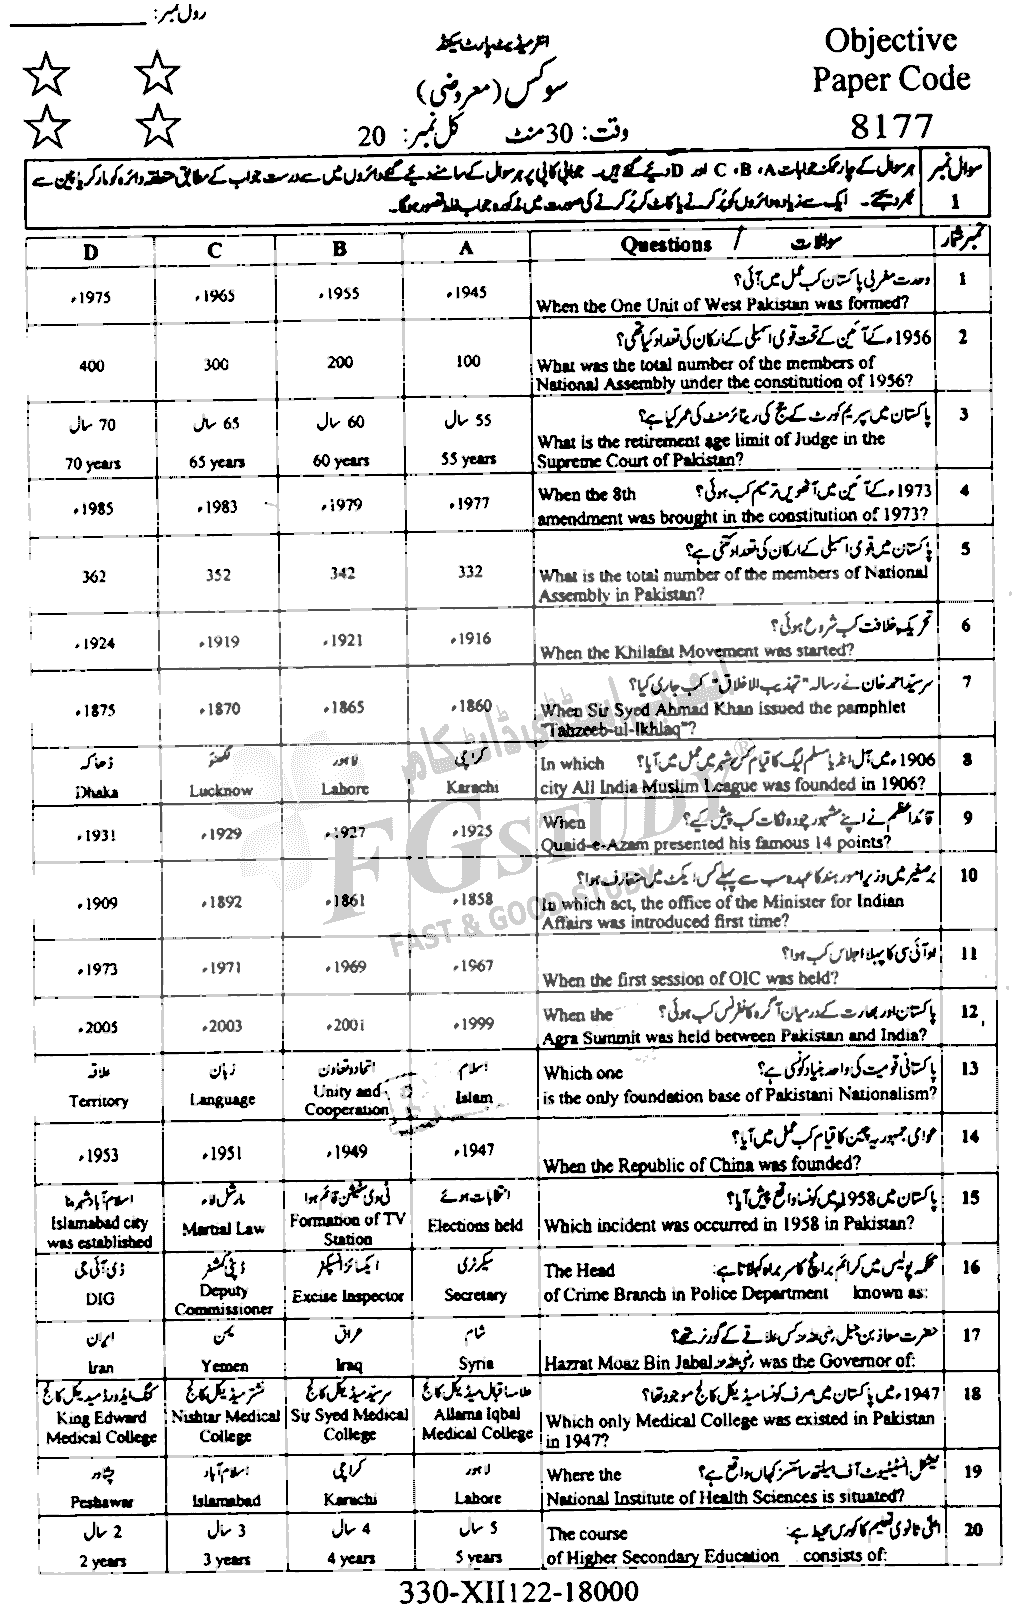 رول نمبر:
انٹرمیڈیٹ پارٹ سیکنڈ
Objective
Paper Code
8177
سوکس (معروضی)
وقت: 30 منٹ کل نمبر: 20
سوال نمبر 1
ہر سوال کے چار ممکنہ جوابات A، B، C اور D دیئے گئے ہیں۔ جوابی کاپی پر ہر سوال کے سامنے دیئے گئے دائروں میں سے درست جواب کے مطابق متعلقہ دائرہ کو مارکر یا پین سے
بھر دیجئے۔ ایک سے زیادہ دائروں کو پُر کرنے یا کاٹ کر پُر کرنے کی صورت میں مذکورہ جواب غلط تصور ہوگا۔
نمبر شمار سوالات / Questions A B C D
1 وحدت مغربی پاکستان کب عمل میں آئی؟
When the One Unit of West Pakistan was formed?
1945ء 1955ء 1965ء 1975ء
2 1956ء کے آئین کے تحت قومی اسمبلی کے ارکان کی تعداد کیا تھی؟
What was the total number of the members of
National Assembly under the constitution of 1956?
100 200 300 400
3 پاکستان میں سپریم کورٹ کے جج کی ریٹائرمنٹ کی عمر کیا ہے؟
What is the retirement age limit of Judge in the
Supreme Court of Pakistan?
55 سال 60 سال 65 سال 70 سال
55 years 60 years 65 years 70 years
4 1973ء کے آئین میں آٹھویں ترمیم کب ہوئی؟ When the 8th
amendment was brought in the constitution of 1973?
1977ء 1979ء 1983ء 1985ء
5 پاکستان میں قومی اسمبلی کے ارکان کی تعداد کتنی ہے؟
What is the total number of the members of National
Assembly in Pakistan?
332 342 352 362
6 تحریک خلافت کب شروع ہوئی؟
When the Khilafat Movement was started?
1916ء 1921ء 1919ء 1924ء
7 سرسید احمد خان نے رسالہ "تہذیب الاخلاق" کب جاری کیا؟
When Sir Syed Ahmad Khan issued the pamphlet
"Tahzeeb-ul-Ikhlaq"?
1860ء 1865ء 1870ء 1875ء
8 1906ء میں آل انڈیا مسلم لیگ کا قیام کس شہر میں عمل میں آیا؟ In which
city All India Muslim League was founded in 1906?
کراچی لاہور لکھنؤ ڈھاکہ
Karachi Lahore Lucknow Dhaka
9 قائداعظم نے اپنے مشہور چودہ نکات کب پیش کیے؟ When
Quaid-e-Azam presented his famous 14 points?
1925ء 1927ء 1929ء 1931ء
10 برصغیر میں وزیر امور ہند کا عہدہ سب سے پہلے کس ایکٹ میں متعارف ہوا؟
In which act, the office of the Minister for Indian
Affairs was introduced first time?
1858ء 1861ء 1892ء 1909ء
11 او آئی سی کا پہلا اجلاس کب ہوا؟
When the first session of OIC was held?
1967ء 1969ء 1971ء 1973ء
12 پاکستان اور بھارت کے درمیان آگرہ کانفرنس کب ہوئی؟ When the
Agra Summit was held between Pakistan and India?
1999ء 2001ء 2003ء 2005ء
13 پاکستانی قومیت کی واحد بنیاد کونسی ہے؟ Which one
is the only foundation base of Pakistani Nationalism?
اسلام اتحاد و تعاون زبان علاقہ
Islam Unity and Cooperation Language Territory
14 عوامی جمہوریہ چین کا قیام کب عمل میں آیا؟
When the Republic of China was founded?
1947ء 1949ء 1951ء 1953ء
15 پاکستان میں 1958ء میں کونسا واقع پیش آیا؟
Which incident was occurred in 1958 in Pakistan?
انتخابات ہوئے ٹی وی سٹیشن قائم ہوا مارشل لاء اسلام آباد شہر بنا
Elections held Formation of TV Station Martial Law Islamabad city was established
16 محکمہ پولیس میں کرائم برانچ کا سربراہ کہلاتا ہے: The Head
of Crime Branch in Police Department known as:
سیکرٹری ایکسائز انسپکٹر ڈپٹی کمشنر ڈی آئی جی
Secretary Excise Inspector Deputy Commissioner DIG
17 حضرت معاذ بن جبل رضی اللہ عنہ کس علاقے کے گورنر تھے؟
Hazrat Moaz Bin Jabal رضی اللہ عنہ was the Governor of:
شام عراق یمن ایران
Syria Iraq Yemen Iran
18 1947ء میں پاکستان میں صرف کونسا میڈیکل کالج موجود تھا؟
Which only Medical College was existed in Pakistan
in 1947?
علامہ اقبال میڈیکل کالج سرسید میڈیکل کالج نشتر میڈیکل کالج کنگ ایڈورڈ میڈیکل کالج
Allama Iqbal Medical College Sir Syed Medical College Nishtar Medical College King Edward Medical College
19 نیشنل انسٹیٹیوٹ آف ہیلتھ سائنسز کہاں واقع ہے؟ Where the
National Institute of Health Sciences is situated?
لاہور کراچی اسلام آباد پشاور
Lahore Karachi Islamabad Peshawar
20 اعلیٰ ثانوی تعلیم کا کورس محیط ہے: The course
of Higher Secondary Education consists of:
5 سال 4 سال 3 سال 2 سال
5 years 4 years 3 years 2 years
330-XII122-18000
ایف جی سٹڈی ڈاٹ کام
FG STUDY
FAST & GOOD STUDY